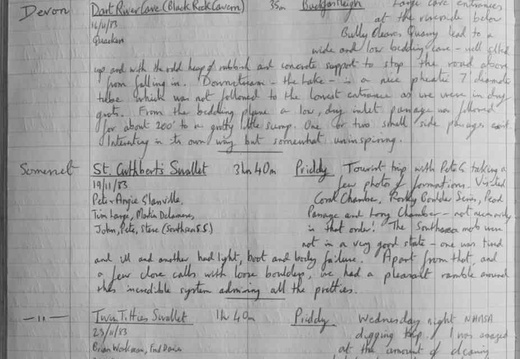 Devon Dart River Cave (Black Rock Cavern) 35m Buckfastleigh Large cave entrances
16/11/83 at the riverside below
Quacken Bulley Cleaves Quarry lead to a
wide and low bedding cave - well filled
up and with the odd heap of rubbish and concrete support to stop the road above
from falling in. Downstream - the lake - is a nice phreatic 7' diameter
tube which was not followed to the lowest entrance as we were in dry
grots. From the bedding plane a low, dry inlet passage was followed
for about 200' to a grotty little sump. One (or two) small side passages and
Interesting in its own way but somewhat uninspiring.
Somerset St. Cuthbert's Swallet 3h 40m Priddy Tourist trip with Pete G taking a
19/11/83 few photos of formations. Visited
Pete + Angie Glanville, Coral Chamber, Rocky Boulder Series, Pearl
Tim Large, Martin Passage and Long Chamber - not necessarily
John, Pete, Steve (Southern S.S.) in that order! The Southern mob were
not in a very good state - one was tired
and ill and another had light, boot and body failure. Apart from that, and
a few close calls with loose boulders, we had a pleasant ramble around
this incredible system admiring all the pretties.
- " - Twin Titties Swallet 1h 40m Priddy Wednesday night NHASA
23/11/83 digging trip. I was amazed
Brian Workman, at the amount of clearing